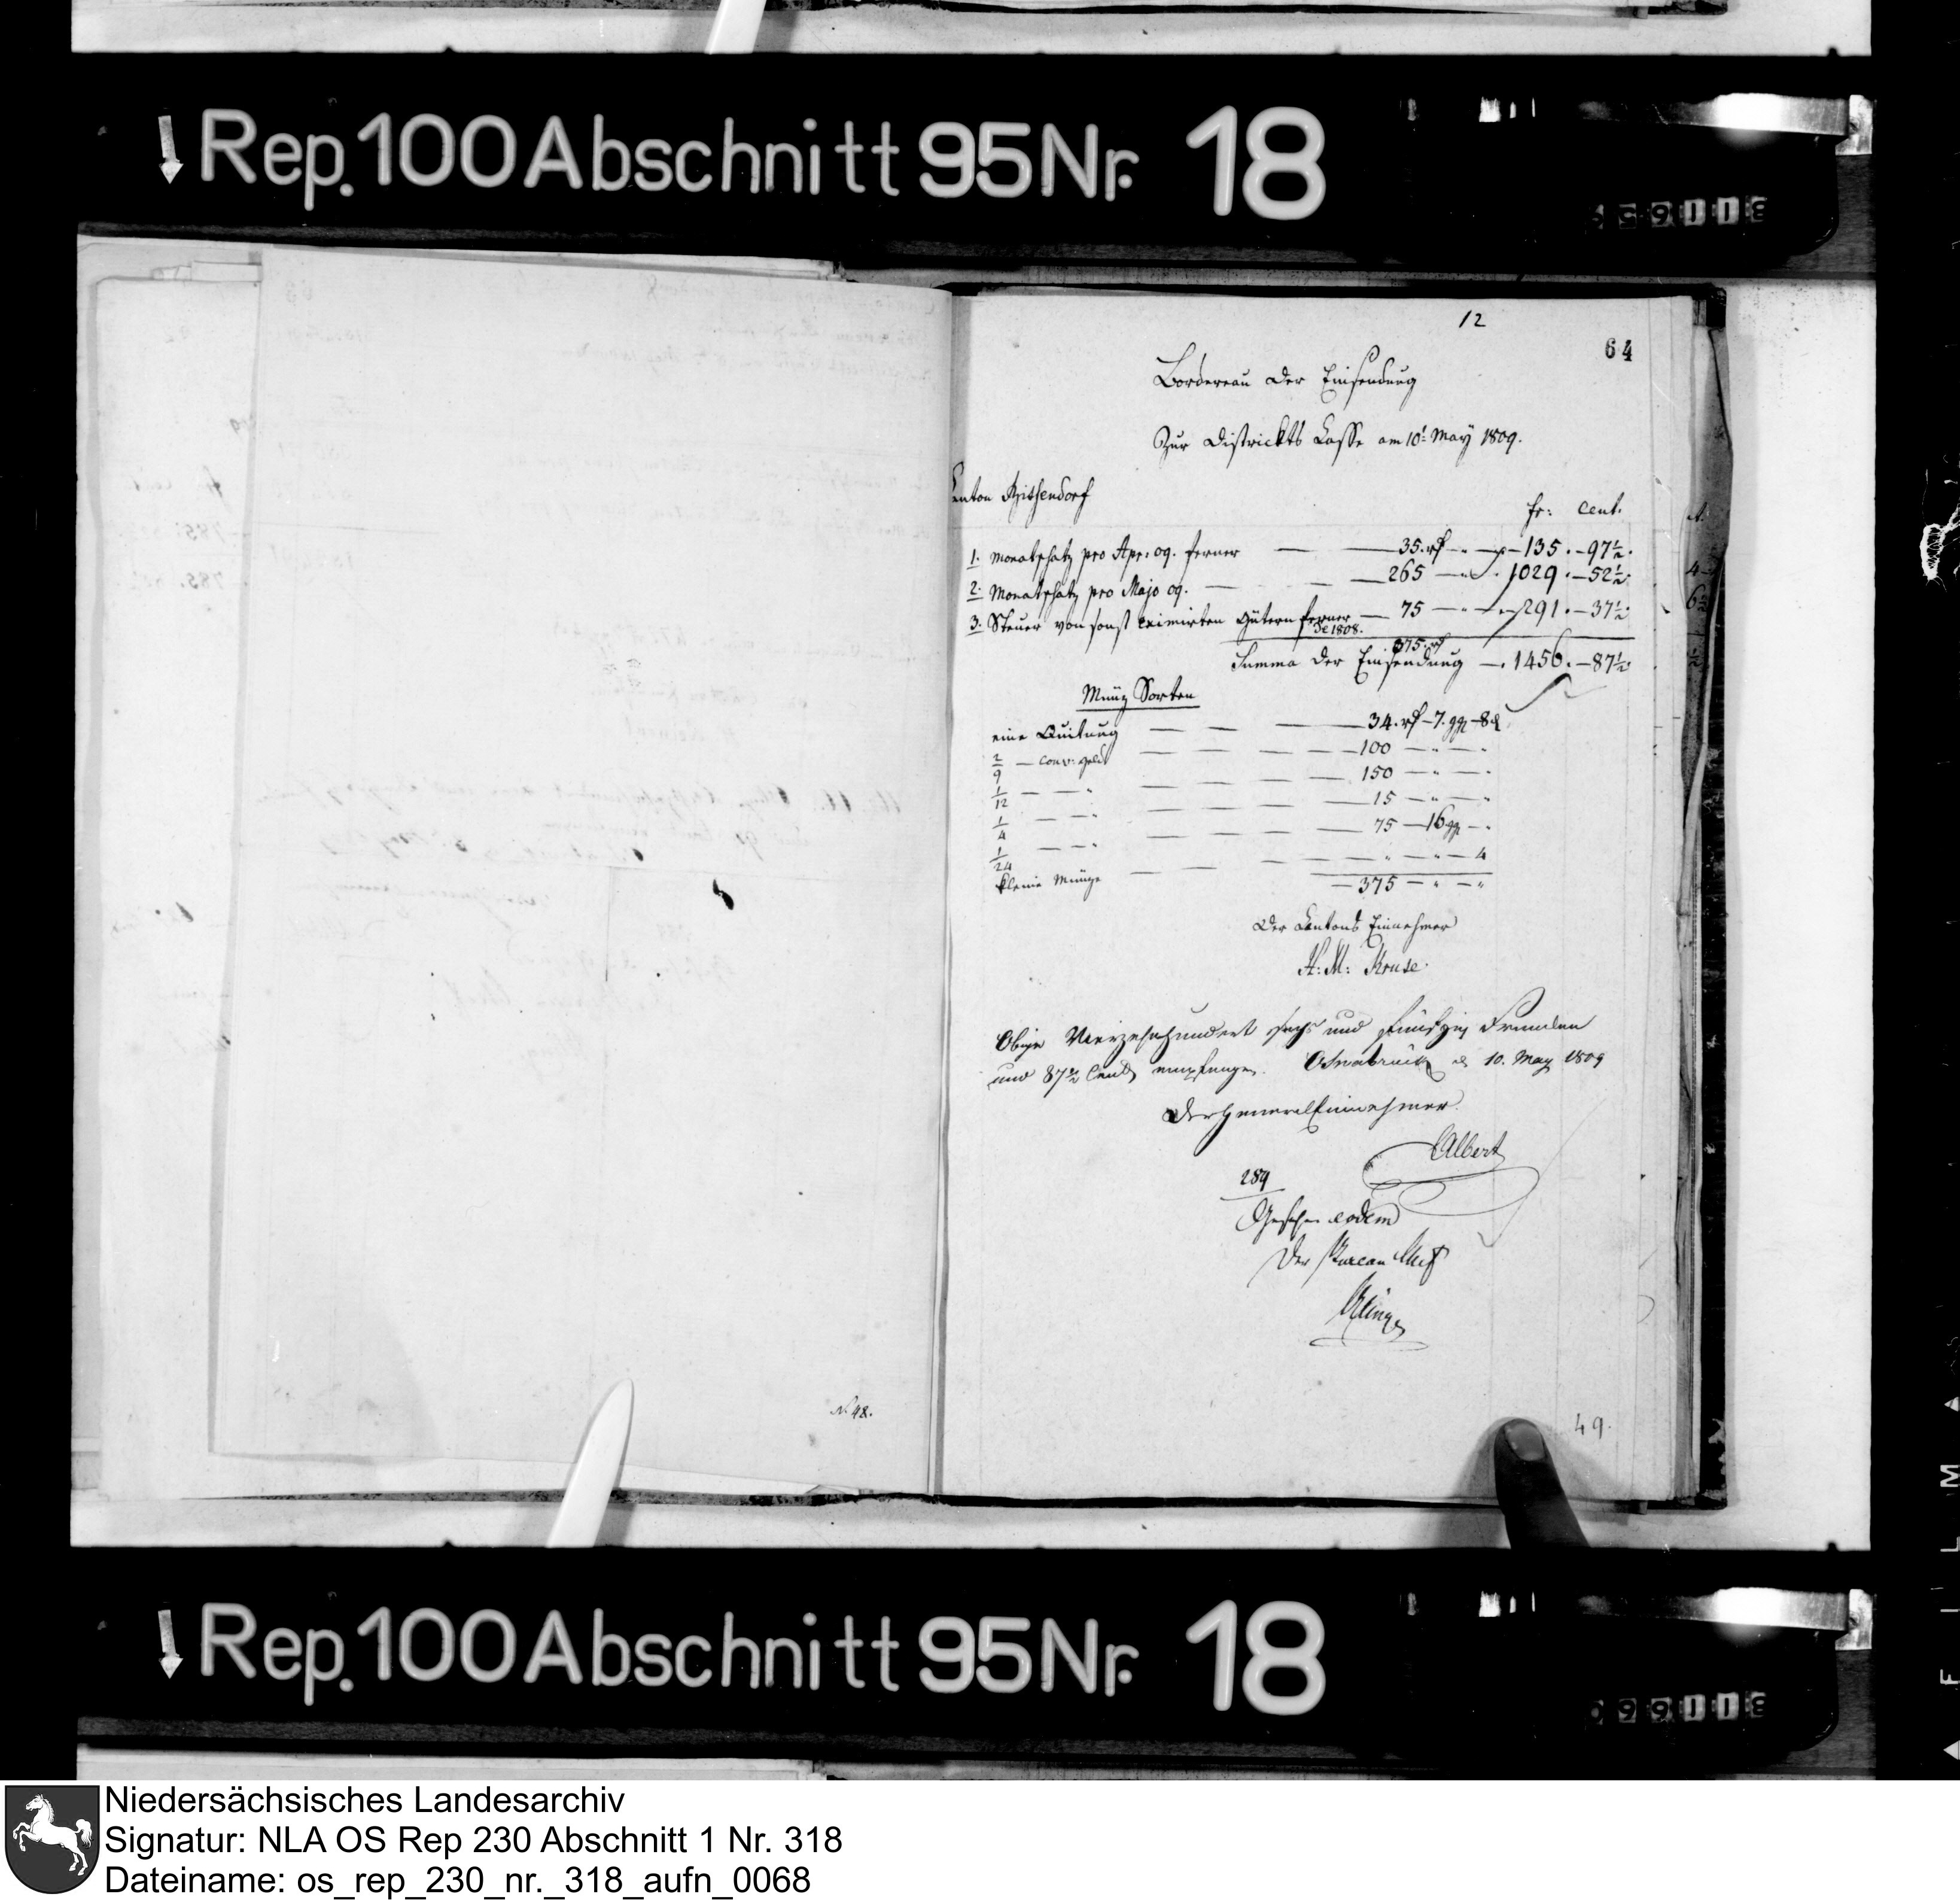 Rep. 100 Abschnitt 95 Nr. 18
12
64
Bordereau der Einsendung
Zur Districkts Casse am 10t May 1809.
Canton Bissendorf
fr: cent.
1. Monatschatz pro Apr: 09. ferner — 35. rf — " — 135. — 97½.
2. Monatschatz pro Majo 09. — 265 — " — 1029. — 52½.
3. Steuer von sonst eximirten Gütern ferner — 75 — " — 291. — 37½.
de 1808.
375. rf
Summa der Einsendung — 1456. — 87½.
Münz Sorten
eine Quitung — 34. rf — 7. ggl — 8 d
— conv: geld — 100 — " — "
1/12 — " — 150 — " — "
1/4 — " — 15 — " — "
1/24 — " — 75 — 16 ggl — "
kleine Münze — " — " — 4
— 375 — " — "
Der Cantons Einnehmer
H: M: Kruse.
Obige Vierzehnhundert sechs und fünfzig Franken
und 87½ Cent empfangen. Osnabrück d 10. May 1809
Der General Einnehmer
Albert
289
Gesehen eodem
Der Bureau Chef
N. 48.
49.
Rep. 100 Abschnitt 95 Nr. 18
Niedersächsisches Landesarchiv
Signatur: NLA OS Rep 230 Abschnitt 1 Nr. 318
Dateiname: os_rep_230_nr._318_aufn_0068